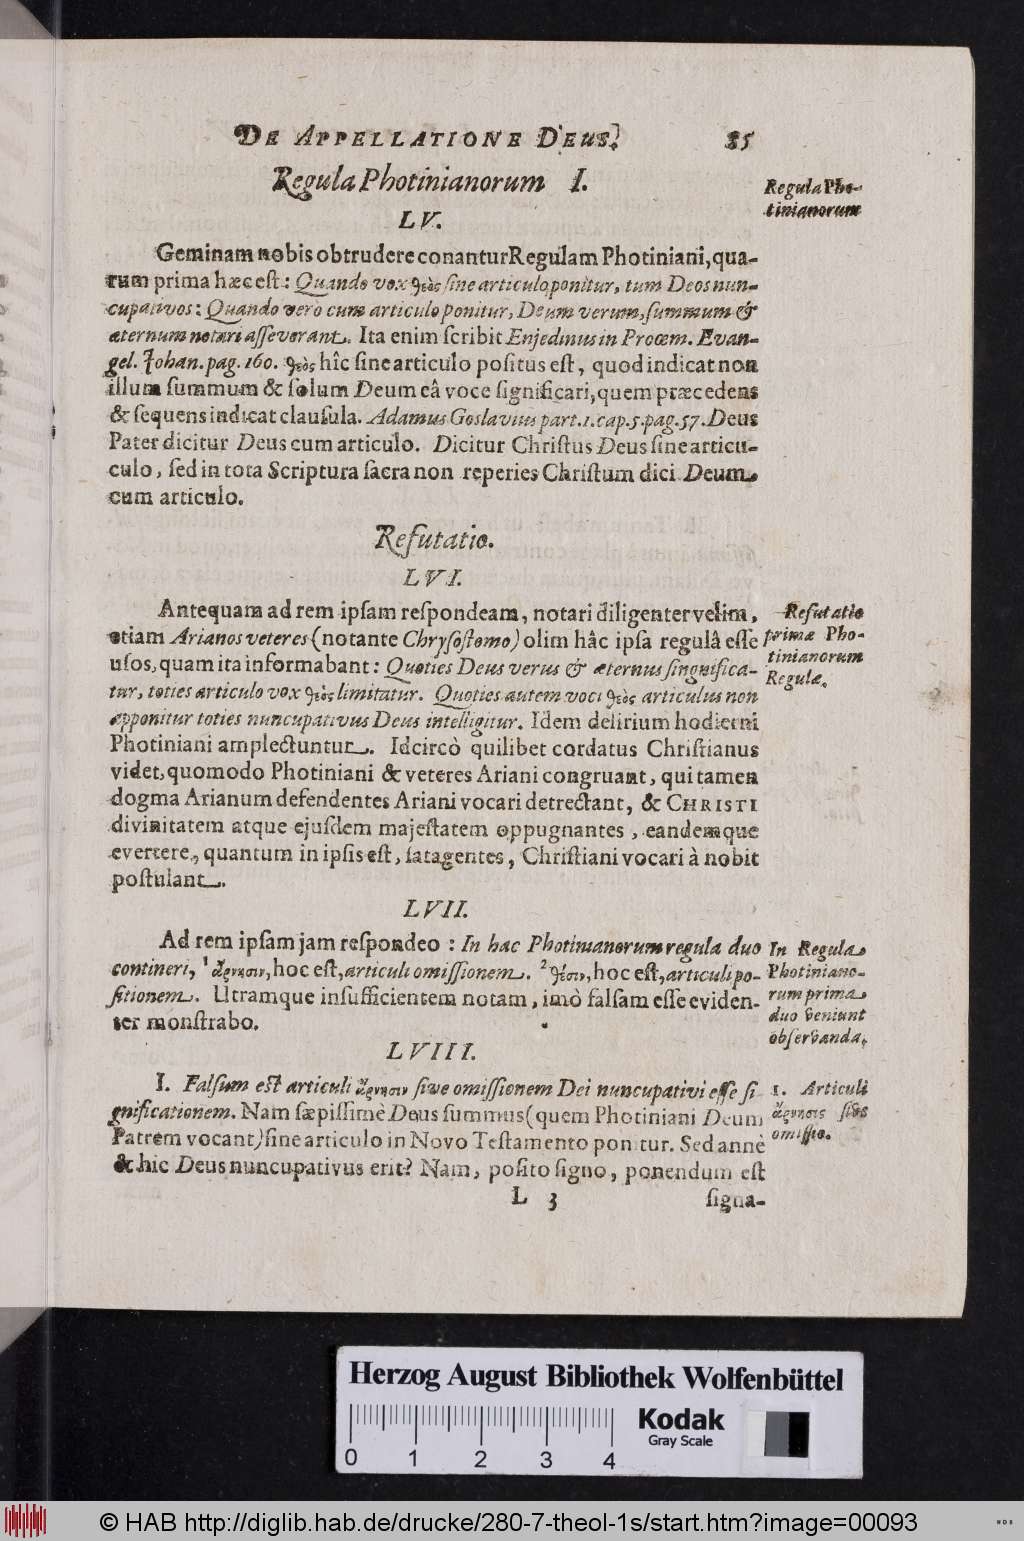 DE APPELLATIONE DEUS. 85
Regula Photinianorum I.
LV.
Geminam nobis obtrudere conantur Regulam Photiniani, qua-
rum prima hæc est: Quando vox θεὸς sine articulo ponitur, tum Deos nun-
cupativos: Quando vero cum articulo ponitur, Deum verum, summum &
æternum notari asseverant. Ita enim scribit Enjedinus in Proœm. Evan-
gel. Johan. pag. 160. θεὸς hîc sine articulo positus est, quod indicat non
illum summum & solum Deum eâ voce significari, quem præcedens
& sequens indicat clausula. Adamus Goslavius part. 1. cap. 5. pag. 57. Deus
Pater dicitur Deus cum articulo. Dicitur Christus Deus sine articu-
culo, sed in tota Scriptura sacra non reperies Christum dici Deum
cum articulo.
Regula Pho-
tinianorum
Refutatio.
LVI.
Antequam ad rem ipsam respondeam, notari diligenter velim,
etiam Arianos veteres (notante Chrysostomo) olim hâc ipsa regulâ esse
usos, quam ita informabant: Quoties Deus verus & æternus singnifica-
tur, toties articulo vox θεὸς limitatur. Quoties autem voci θεὸς articulus non
apponitur toties nuncupativus Deus intelligitur. Idem delirium hodierni
Photiniani amplectuntur. Idcircò quilibet cordatus Christianus
videt, quomodo Photiniani & veteres Ariani congruant, qui tamen
dogma Arianum defendentes Ariani vocari detrectant, & CHRISTI
divinitatem atque ejusdem majestatem oppugnantes, eandemque
evertere, quantum in ipsis est, satagentes, Christiani vocari à nobit
postulant.
Refutatio
primæ Pho-
tinianorum
Regulæ.
LVII.
Ad rem ipsam jam respondeo: In hac Photinianorum regula duo
contineri, 1 ἄρνησιν, hoc est, articuli omissionem. 2 θέσιν, hoc est, articuli po-
sitionem. Utramque insufficientem notam, imò falsam esse eviden-
ter monstrabo.
In Regula
Photiniano-
rum prima
duo veniunt
observanda.
LVIII.
I. Falsum est articuli ἄρνησιν sive omissionem Dei nuncupativi esse si-
gnificationem. Nam sæpissimè Deus summus (quem Photiniani Deum
Patrem vocant) sine articulo in Novo Testamento ponitur. Sed annè
& hic Deus nuncupativus erit? Nam, posito signo, ponendum est
1. Articuli
ἄρνησις sive
omissio.
L 3 signa-
Herzog August Bibliothek Wolfenbüttel
Kodak
Gray Scale
0 1 2 3 4
© HAB http://diglib.hab.de/drucke/280-7-theol-1s/start.htm?image=00093